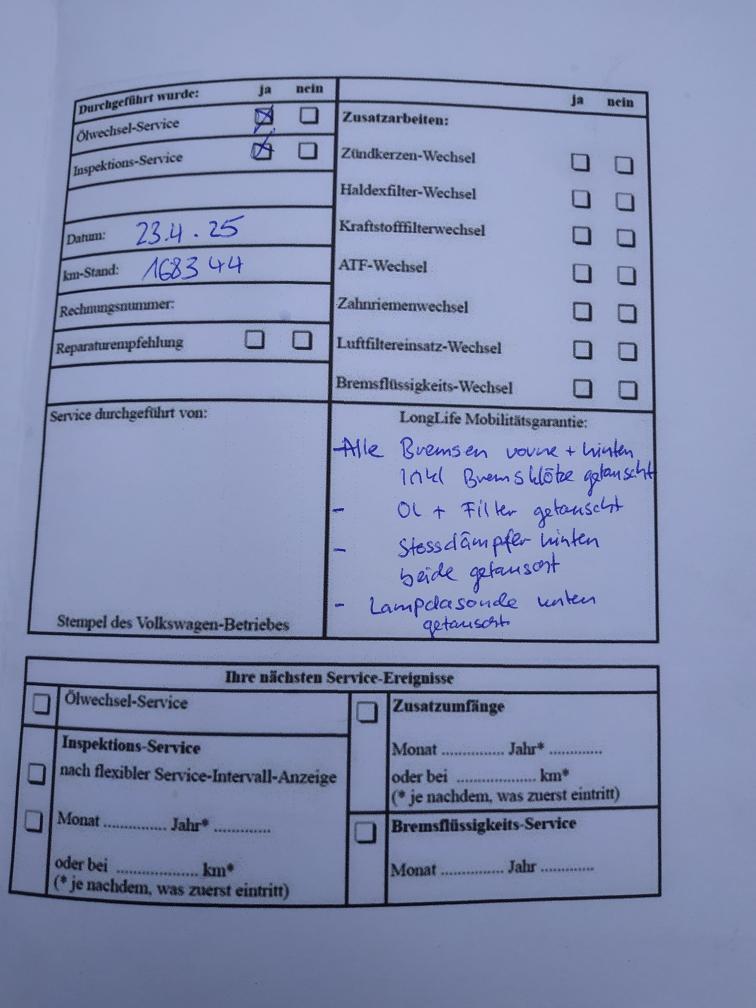 Durchgeführt wurde: ja nein
Ölwechsel-Service
Inspektions-Service
Datum: 23.4.25
km-Stand: 168344
Rechnungsnummer:
Reparaturempfehlung
Service durchgeführt von:
Stempel des Volkswagen-Betriebes
ja nein
Zusatzarbeiten:
Zündkerzen-Wechsel
Haldexfilter-Wechsel
Kraftstofffilterwechsel
ATF-Wechsel
Zahnriemenwechsel
Luftfiltereinsatz-Wechsel
Bremsflüssigkeits-Wechsel
LongLife Mobilitätsgarantie:
- Alle Bremsen vorne + hinten
inkl Bremsklötze getauscht
- Öl + Filter getauscht
- Stossdämpfer hinten
beide getauscht
- Lampdasonde unten
getauscht
Ihre nächsten Service-Ereignisse
Ölwechsel-Service
Inspektions-Service
nach flexibler Service-Intervall-Anzeige
Monat ............... Jahr* .............
oder bei ................... km*
(* je nachdem, was zuerst eintritt)
Zusatzumfänge
Monat ............... Jahr* .............
oder bei ................... km*
(* je nachdem, was zuerst eintritt)
Bremsflüssigkeits-Service
Monat ............... Jahr .............